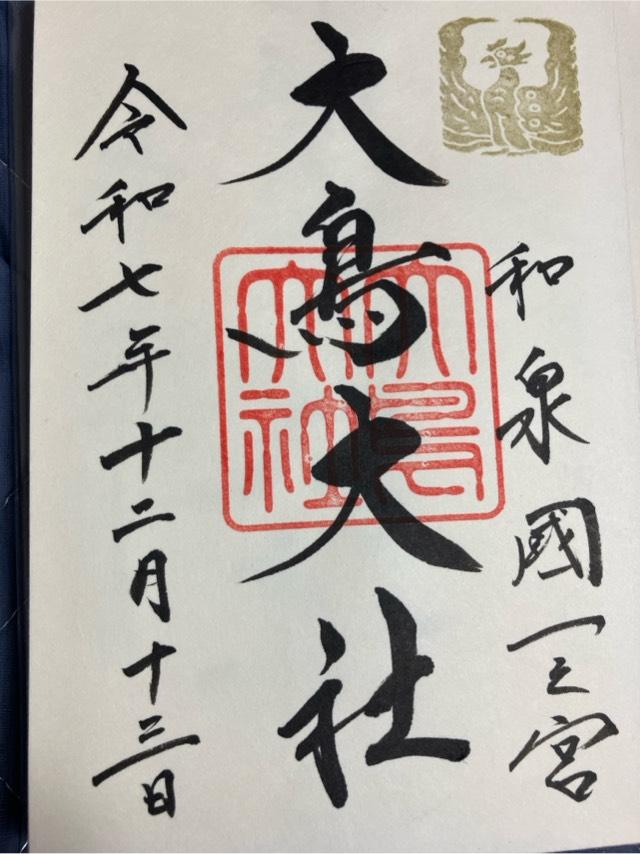 和泉國一之宮
大鳥大社
大鳥大社
令和七年十二月十三日